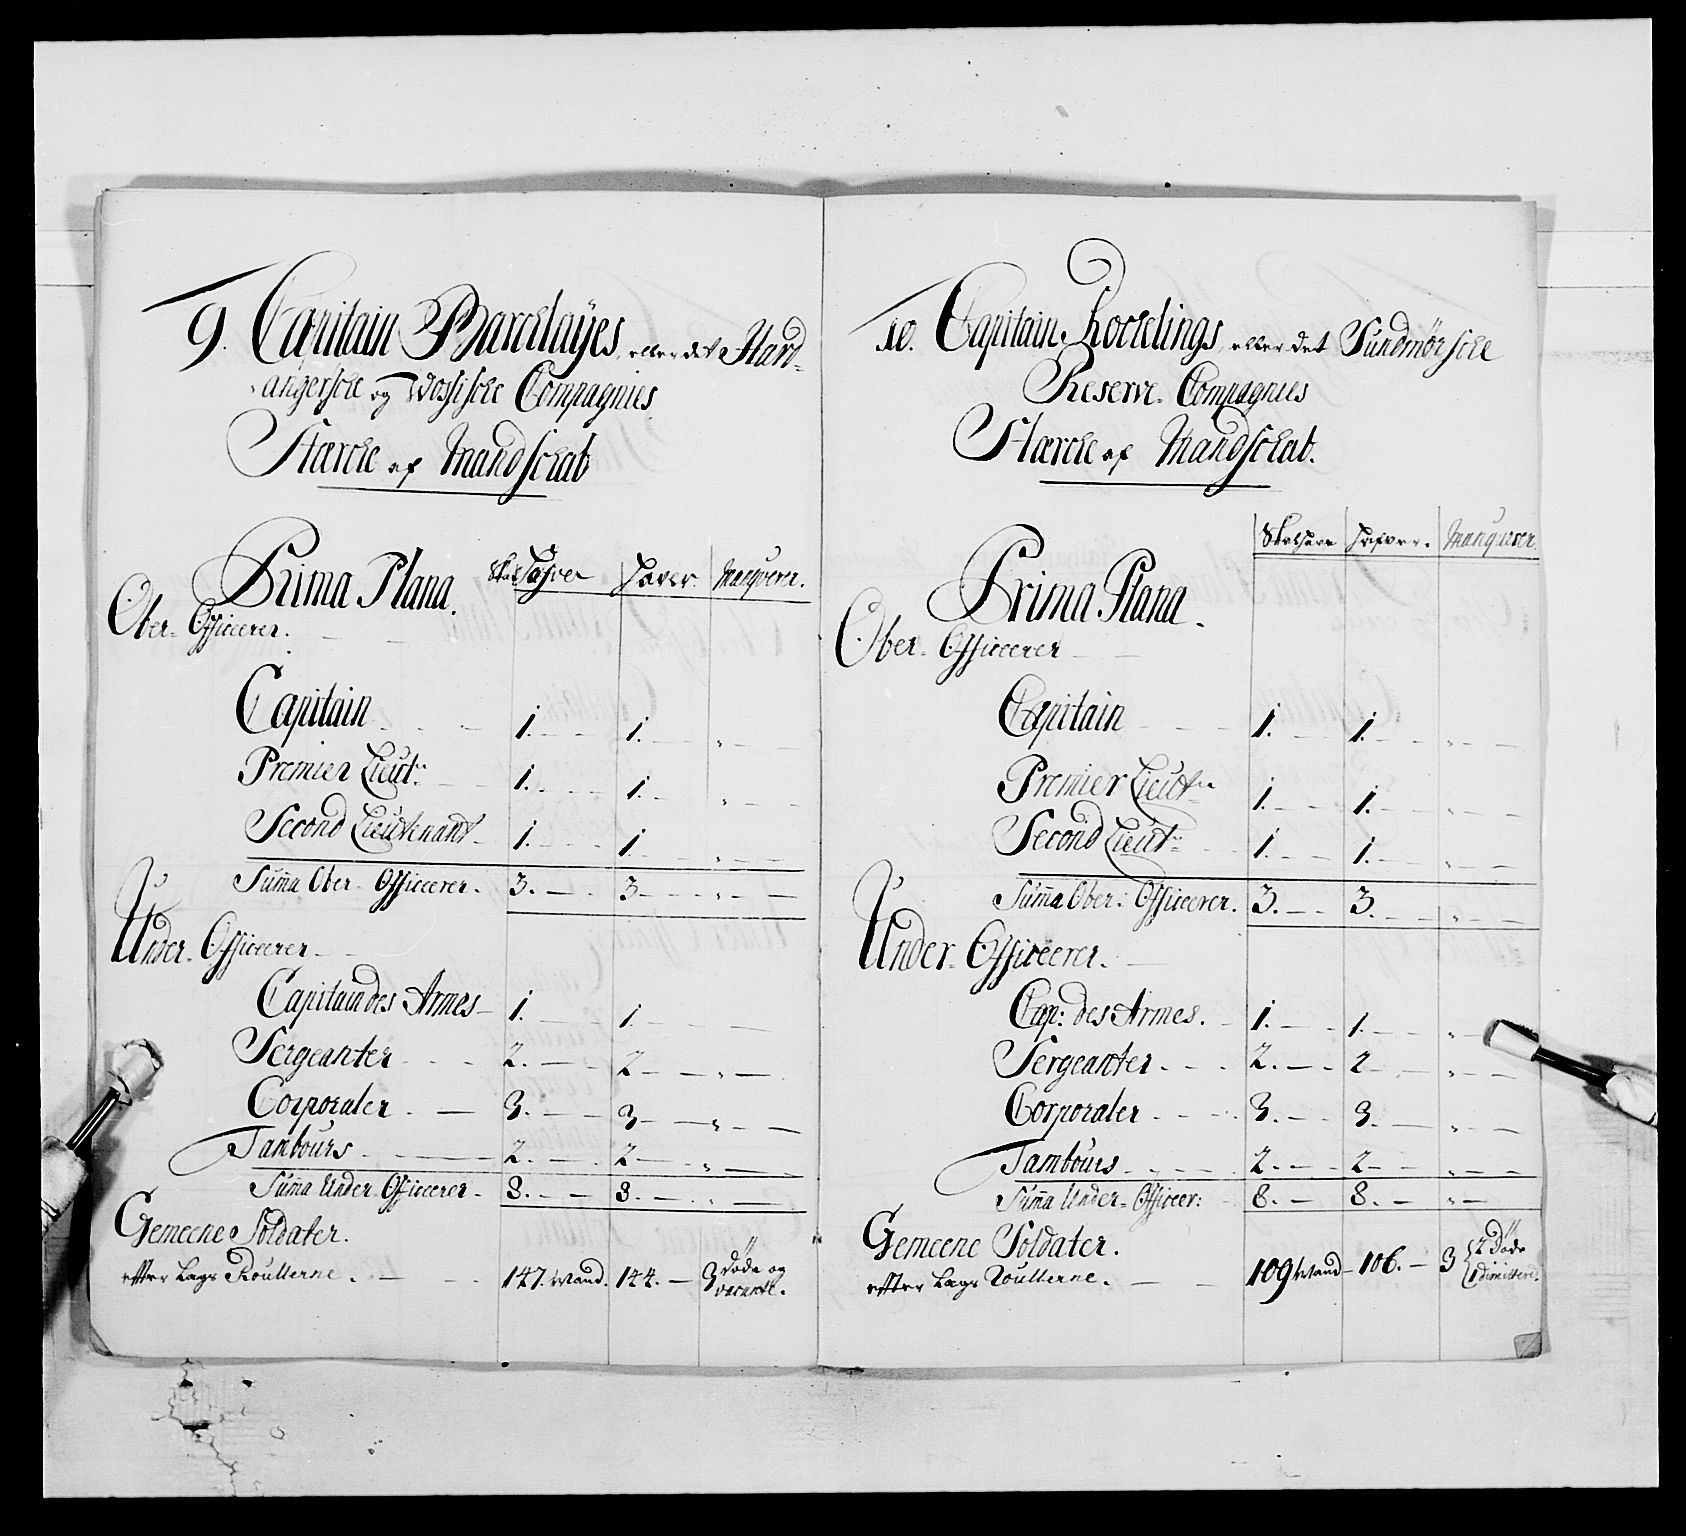 9. Capitain Barclayes, eller det Hard-
angersche og Wossische Compagnies
Stærcke af Mandschab
Prima Plana. Skal Hafve Haver. Manqverer.
Ober-Officerer.
Capitain 1. 1. „
Premier Lieutn: 1. 1. „
Second Lieutenant 1. 1. „
Summa Ober-Officerer. 3. 3 „
Under-Officerer
Capitain des Armes 1. 1.
Sergeanter 2. 2 „
Corporaler 3. 3 „
Tambours 2. 2 „
Summa Under-Officerer 8. 8. „
Gemeene Soldater.
efter Lægs Roullerne. 147. Mand. 144. 3 Døde og
vacante.
10. Capitain eller det Sundmørsche
Reserve-Compagnies
Stærcke af Mandschab.
Skal have Hafver. Manqverer
Prima Plana.
Ober-Officerer
Capitain 1. 1. „
Premier Lieutn 1. 1. „
Second Lieutn: 1. 1. „
Summa Ober: Officerer. 3. 3. „
Under-Officerer.
Cap: des Armes. 1. 1. „
Sergeanter. 2. 2 „
Corporaler 3. 3. „
Tambours 2. 2 „
Summa Under-Officer: 8. 8. „
Gemeene Soldater.
efter Lægs Roullerne. 109 Mand 106. 3 { 2 Døde
1 dimitteret.